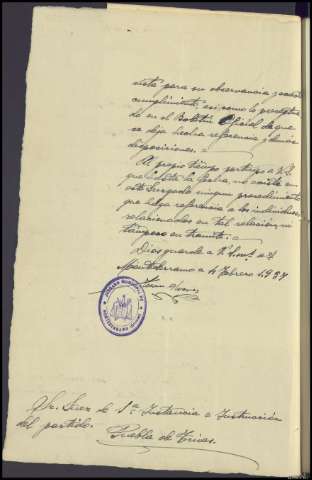 para su observancia y
cumplimiento, así como lo
do en el Boletín Oficial de que
se deja hecha referencia y demás
disposiciones.
Al propio tiempo participo a V.I.
que hasta la fecha, no existe en
este Juzgado ningún procedimiento
que haga referencia a los individuos
relacionados en tal relación, ni
tampoco en tramite.
Dios guarde a V.
Manzaneda a Febrero 1937
JUZGADO MUNICIPAL DE
Sr. Juez de 1ª Instancia e Instrucción
del partido.
Puebla de Trives.